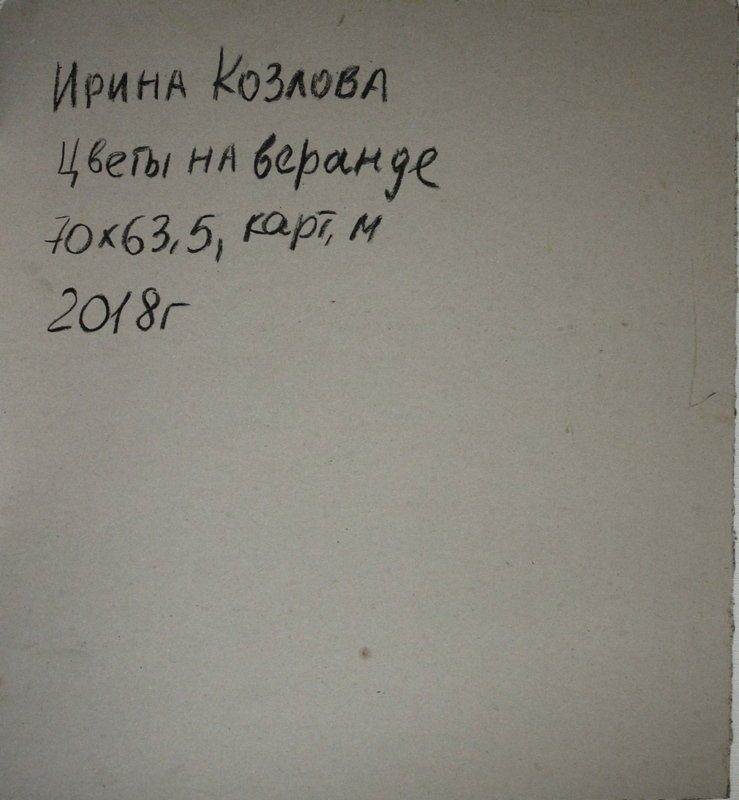 Ирина Козлова
Цветы на веранде
70х63,5, карт, м
2018г